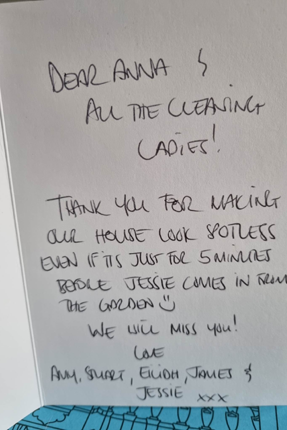 DEAR ANNA &
ALL THE CLEANING
LADIES!
THANK YOU FOR MAKING
OUR HOUSE LOOK SPOTLESS
EVEN IF ITS JUST FOR 5 MINUTES
BEFORE JESSIE COMES IN FROM
THE GARDEN ☺
WE WILL MISS YOU!
LOVE
AMY, STUART, EILIDH, JAMES &
JESSIE xxx